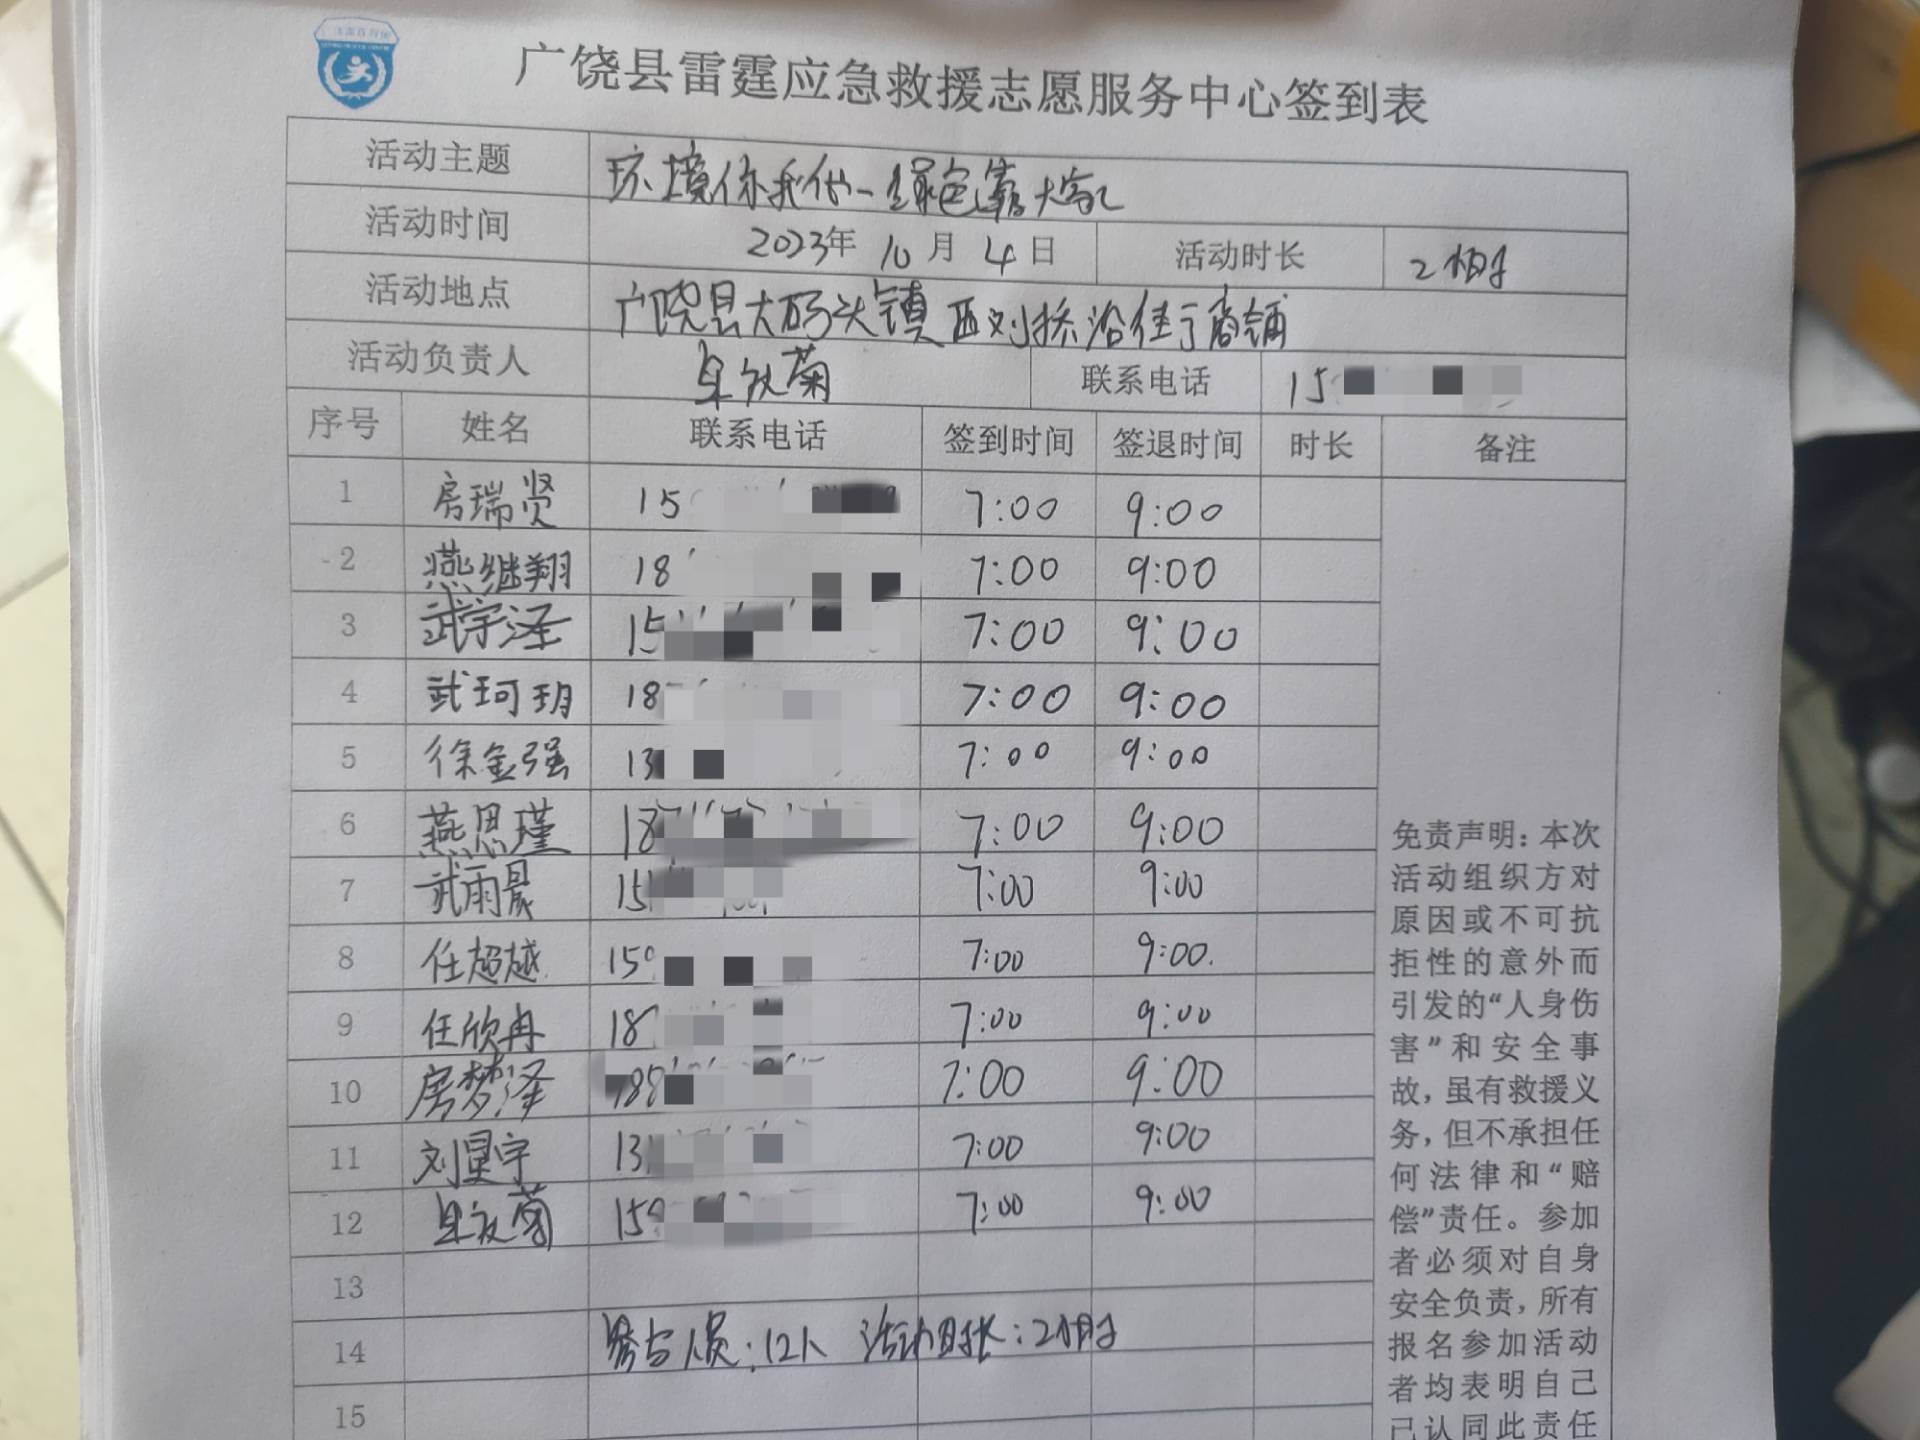 广饶县雷霆应急救援志愿服务中心签到表
活动主题 环境你我他一绿色靠大家
活动时间 2023年 10月 4日 活动时长 2小时
活动地点 广饶县大码头镇西刘桥沿街商铺
活动负责人 菊 联系电话 15
序号 姓名 联系电话 签到时间 签退时间 时长 备注
1 房瑞贤 15 7:00 9:00
2 燕继翔 18 7:00 9:00
3 武宇泽 15 7:00 9:00
4 武珂玥 18 7:00 9:00
5 徐金强 13 7:00 9:00
6 燕思瑾 18 7:00 9:00
7 武雨晨 15 7:00 9:00
8 任超越 159 7:00 9:00.
9 任欣冉 18 7:00 9:00
10 房梦泽 188 7:00 9:00
11 刘昱宇 13 7:00 9:00
12 菊 159 7:00 9:00
13
14 参与人员:12人 活动时长:2小时
15
免责声明：本次
活动组织方对
原因或不可抗
拒性的意外而
引发的“人身伤
害”和安全事
故，虽有救援义
务，但不承担任
何法律和“赔
偿”责任。参加
者必须对自身
安全负责，所有
报名参加活动
者均表明自己
已认同此责任